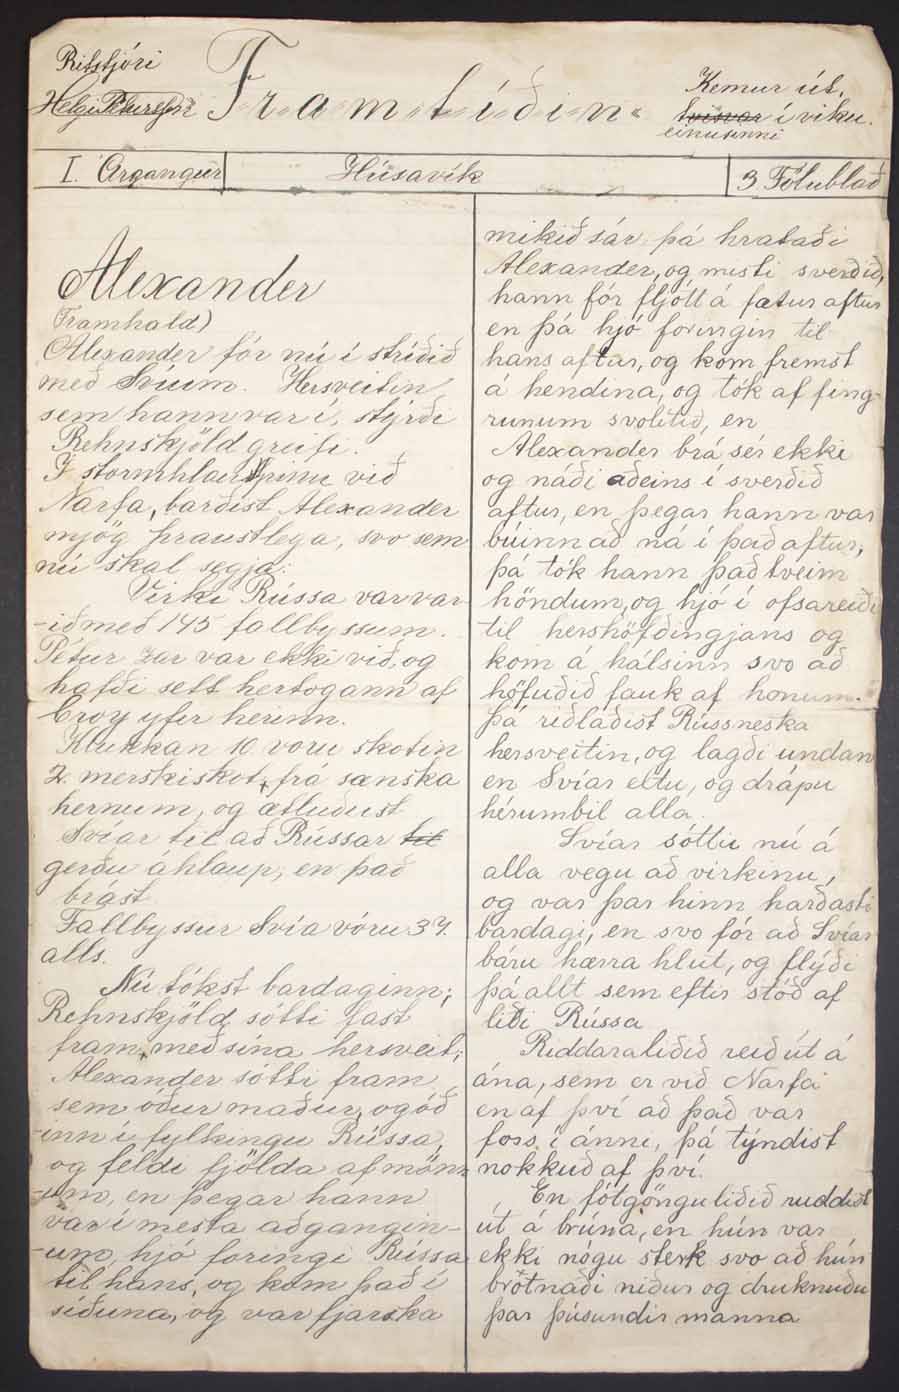 Ritstjóri
Helgi Pétursson
Framtíðin
Kemur út.
tvisvar í viku.
einusinni
I. Árgangur
Húsavík
3 Tölublað
Alexander
(Framhald)
Alexander fór nú í stríðið
með Svíum. Hersveitin
sem hann var í, stýrði
Rehnskjöld greifi.
Í stormhlaupinu við
Narfa, barðist Alexander
mjög hraustlega, svo sem
nú skal segja:
Virki Rússa var var-
-ið með 145 fallbyssum.
Pétur zar var ekki við, og
hafði sett hertogann af
Croy yfir herinn.
Klukkan 10 voru skotin
2 merskiskot, frá sænska
hernum, og ætluðust
Svíar til að Rússar til
gerðu áhlaup, en það
brást.
Fallbyssur Svía vóru 37.
alls.
Nú tókst bardaginn;
Rehnskjöld sótti fast
fram, með sína hersveit;
Alexander sótti fram
sem óður maður, og óð
-inn í fylkingu Rússa,
og feldi fjölda af mönn
-um, en þegar hann
var í mesta aðgangin-
-um, hjó foringi Rússa
til hans, og kom það í
síðuna, og var fjarska
mikið sár þá hrataði
Alexander, og misti sverðið,
hann fór fljótt á fætur aftur
en þá hjó foringin til
hans aftur, og kom fremst
á hendina, og tók af fing-
runum svolítið, en
Alexander brá sér ekki
og náði aðeins í sverðið
aftur, en þegar hann var
búinn að ná í það aftur,
þá tók hann það tveim
höndum, og hjó í ofsareiði
til hershöfðingjans og
kom á hálsinn svo að
höfuðið fauk af honum.
Þá riðlaðist Rússneska
hersveitin, og lagði undan
en Svíar eltu, og drápu
hérumbil alla.
Svíar sóttu nú á
alla vegu að virkinu,
og var þar hinn harðasti
bardagi, en svo fór að Svíar
báru hærra hlut, og flýði
þá allt sem eftir stóð af
liði Rússa
Riddaraliðið reið út á
ána, sem er við Narfa
en af því að það var
foss í ánni, þá týndist
nokkuð af því.
En fótgönguliðið ruddist
út á brúna, en hún var
ekki nógu sterk svo að hún
brotnaði niður og druknuðu
þar þúsundir manna